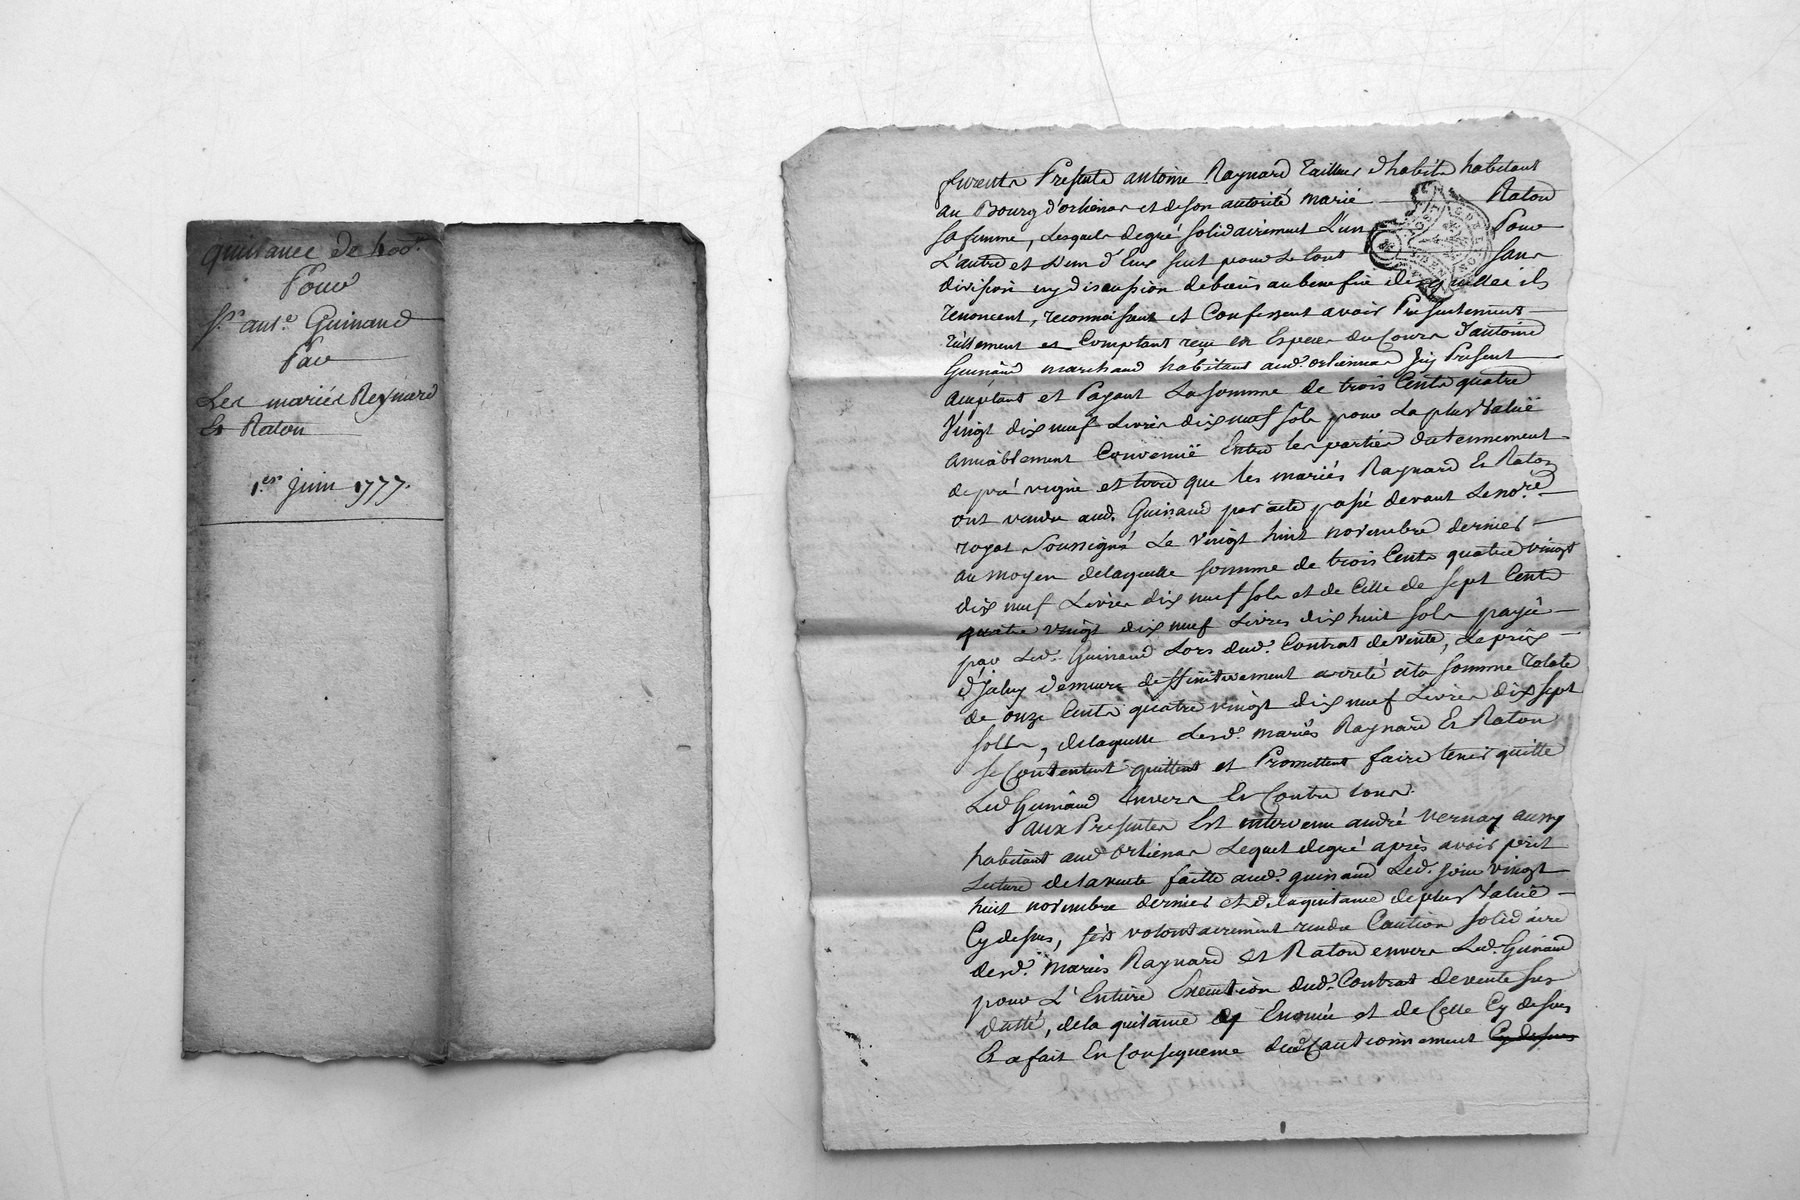 quittance de 400#
Pour
Sr. ant.e Guinand
Par
Les mariés Reynard
Et Raton
1.er juin 1777.
furent Présents antoine Raynard Tailleur d'habits habitant
au Bourg d'orliénas et de son autorité marié Raton
sa femme, Lesquels de gré solidairement L'un Pour
L'autre et L'un d'Eux seul pour Le tout sans
division ny discussion de biens au benefice desquelles ils
renoncent, reconnoissent et Confessent avoir Présentement
réellement et Comptant reçu en Especes du Cours d'antoine
Guinand marchand habitant aud. orliennas Icy Présent
acceptant et Payant La somme de trois Cents quatre
Vingt dix neuf Livres dix neuf sols pour La plus Valüe
amiablement Convenüe Entre les parties du tennement
de pré vigne et terre que les mariés Raynard Et Raton
ont vendu aud. Guinand par acte passé devant Le no.re
royal soussigné Le vingt huit novembre dernier
au moyen de laquelle somme de trois Cents quatre vingt
dix neuf Livres dix neuf sols et de Celle de sept Cents
quatre vingt dix neuf Livres dix huit sols payée
par Led. Guinand Lors dud. Contrat de vente, Le prix
d'jceluy demeure deffinitivement arreté à la somme Totale
de onze Cents quatre vingt dix neuf Livres dix sept
sols, de laquelle Lesd. mariés Raynard Et Raton
se Contentent quittent et Promettent faire tenir quitte
Led Guinand Envers Et Contre tous.
aux Presentes Est intervenu andré Vernay aussy
habitant aud orliénas Lequel de gré après avoir prit
Lecture de la vente faitte aud. guinand Led. jour vingt
huit novembre dernier et de la quitance de plus Valüe
Cy dessus, s'est volontairement rendu Caution solidaire
desd. mariés Raynard et Raton envers Led. Guinand
pour L'Entiere Execution dud. Contrat de vente sus
datté, de la quitance y Enoncée et de Celle Cy dessus
Et a fait En Consequence dud Cautionnement Cy dessus